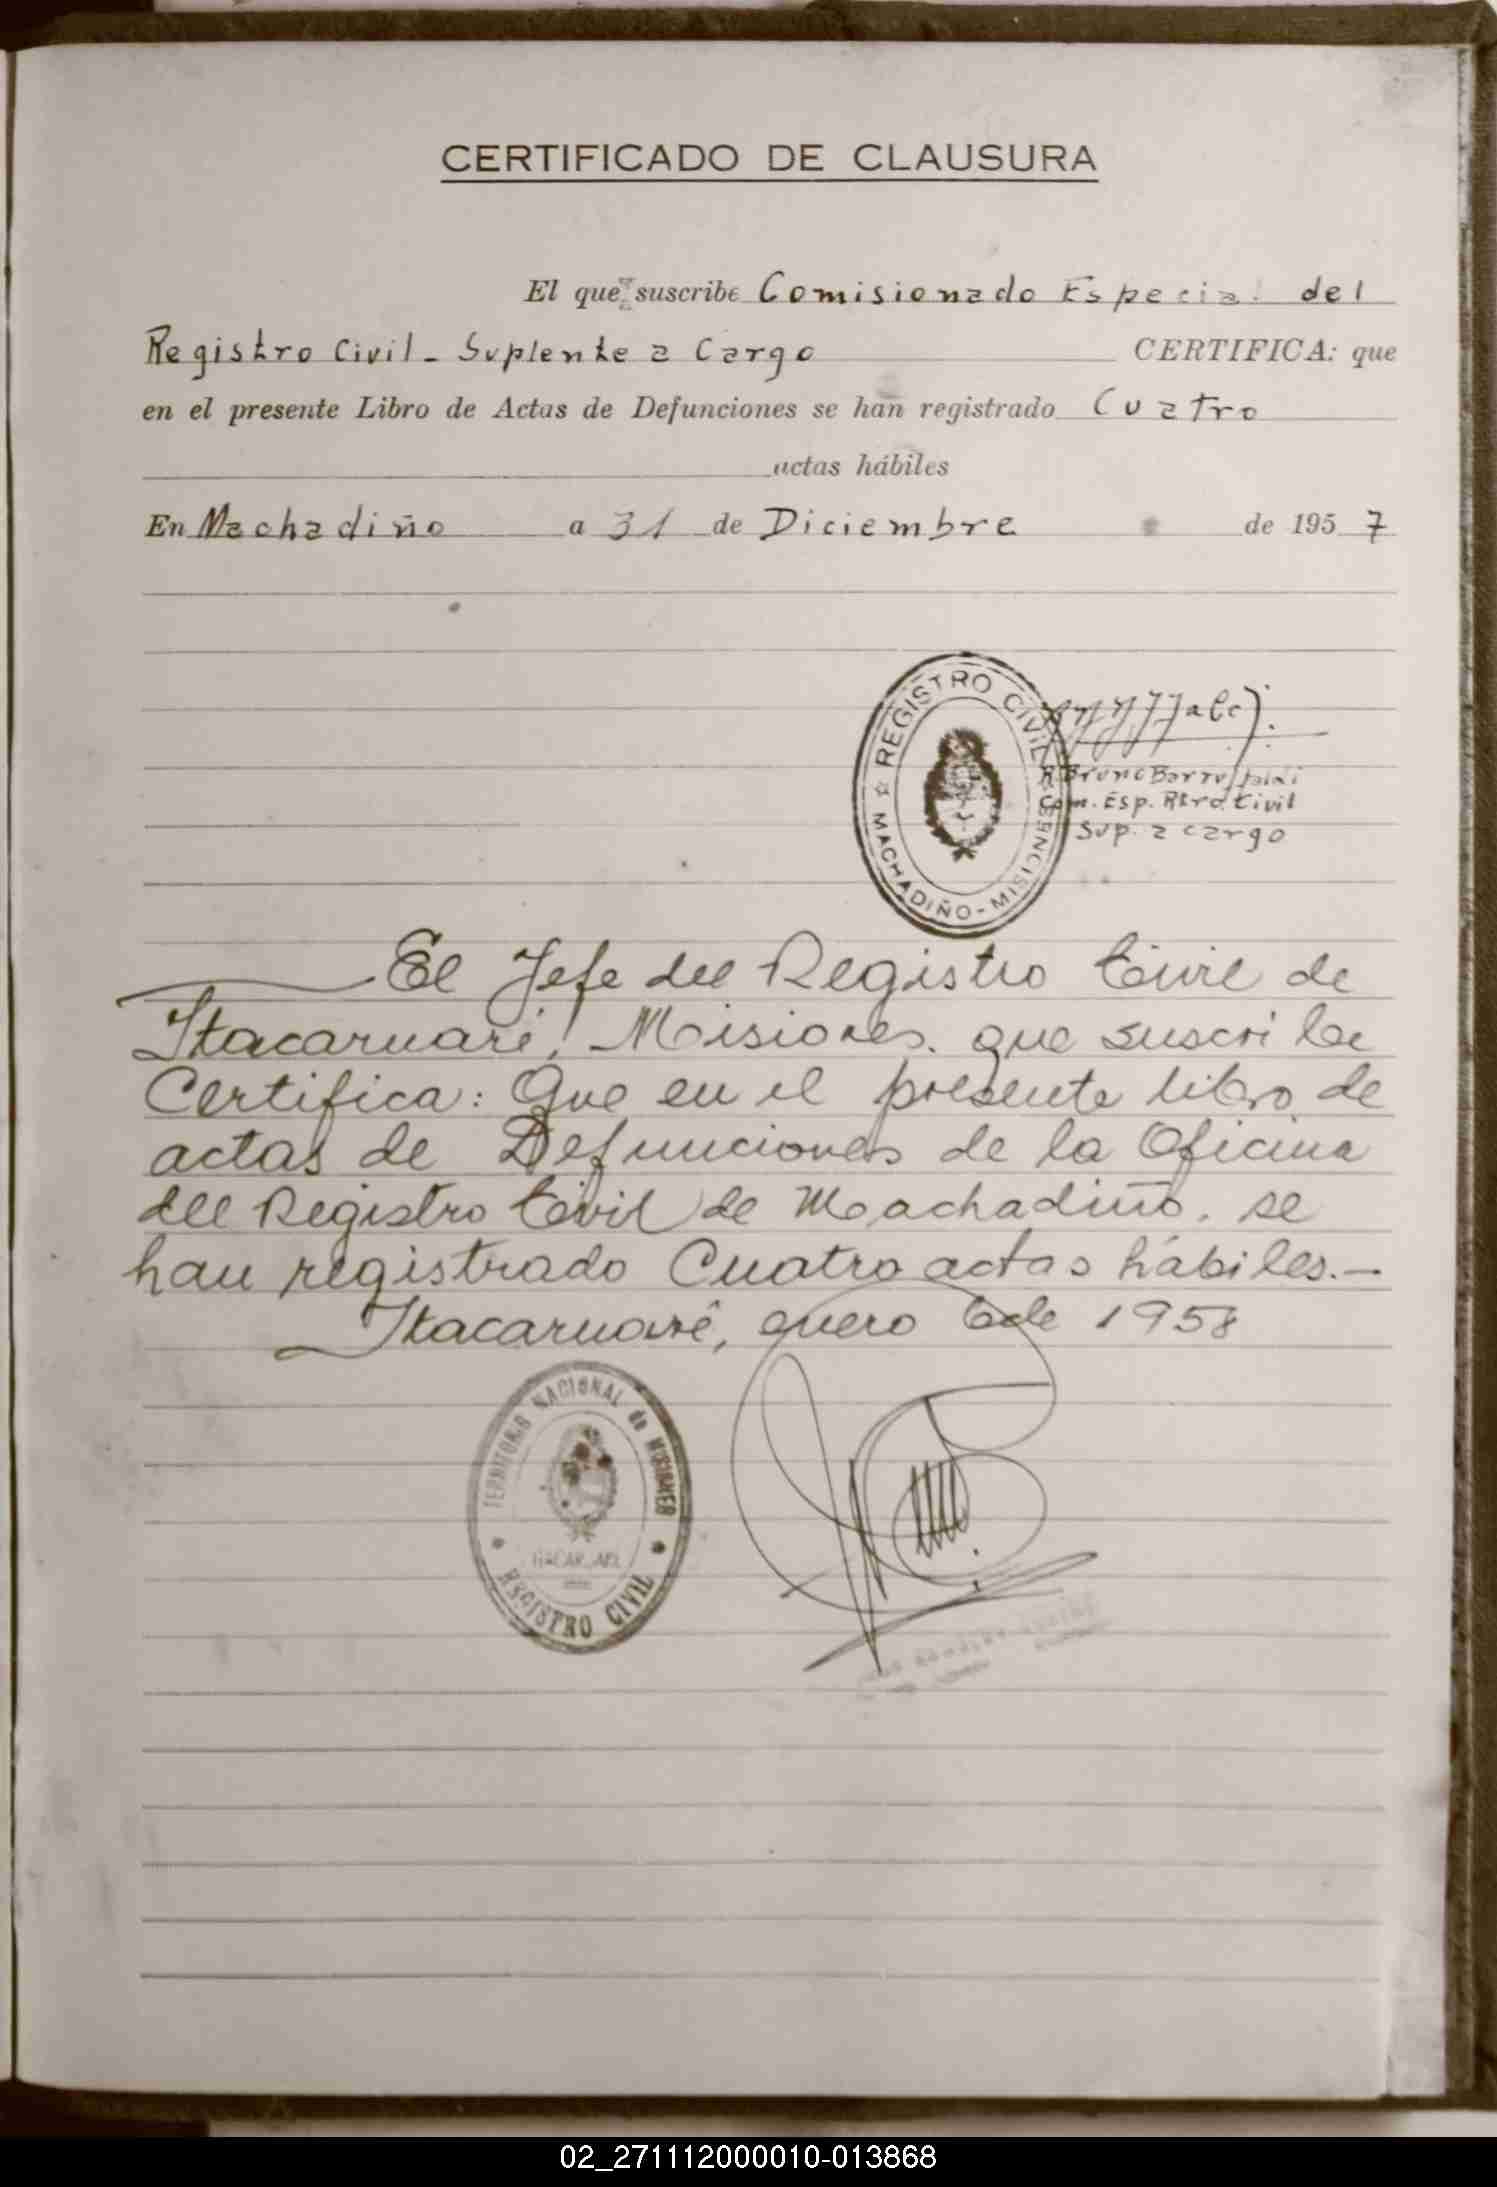 CERTIFICADO DE CLAUSURA
El que suscribe Comisionado Especial del
Registro Civil - Suplente a Cargo CERTIFICA: que
en el presente Libro de Actas de Defunciones se han registrado Cuatro
actas hábiles
En Machadiño a 31 de Diciembre de 1957
REGISTRO CIVIL
MACHADIÑO - MISIONES
R Bruno
Com. Esp. Rtro. Civil
Sup. a cargo
El Jefe del Registro Civil de
Itacaruaré, Misiones. que suscribe
Certifica: Que en el presente libro de
actas de Defunciones de la Oficina
del Registro Civil de Machadiño, se
han registrado Cuatro actas hábiles.-
Itacaruaré, enero 6 de 1958
TERRITORIO NACIONAL de MISIONES
REGISTRO CIVIL
02_271112000010-013868